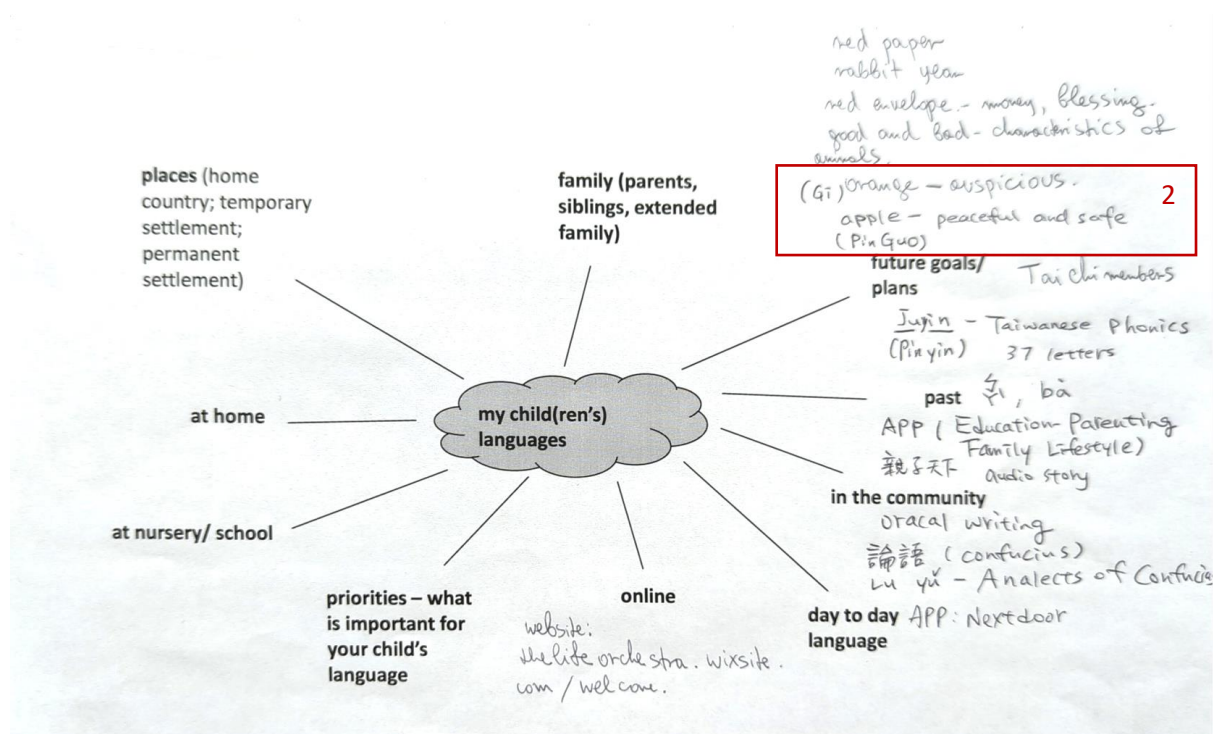 red paper
rabbit year
red envelope - money, blessing.
good and bad - characteristics of
animals.
(Gi) orange - auspicious.
2
apple - peaceful and safe
(Pin Guo)
places (home
country; temporary
settlement;
permanent
settlement)
family (parents,
siblings, extended
family)
future goals/
plans
Tai chi members
Juyin - Taiwanese Phonics
(Pinyin) 37 letters
past ㄅㄚˋ, bà
APP (Education-Parenting
Family Lifestyle)
親子天下 audio story
at home
my child(ren's)
languages
in the community
oracal writing
論語 (confucius)
Lu yǔ - Analects of Confucis
at nursery/ school
priorities – what
is important for
your child's
language
online
website:
thelifeorchestra.wixsite.
com/welcome.
day to day
language
APP: Nextdoor